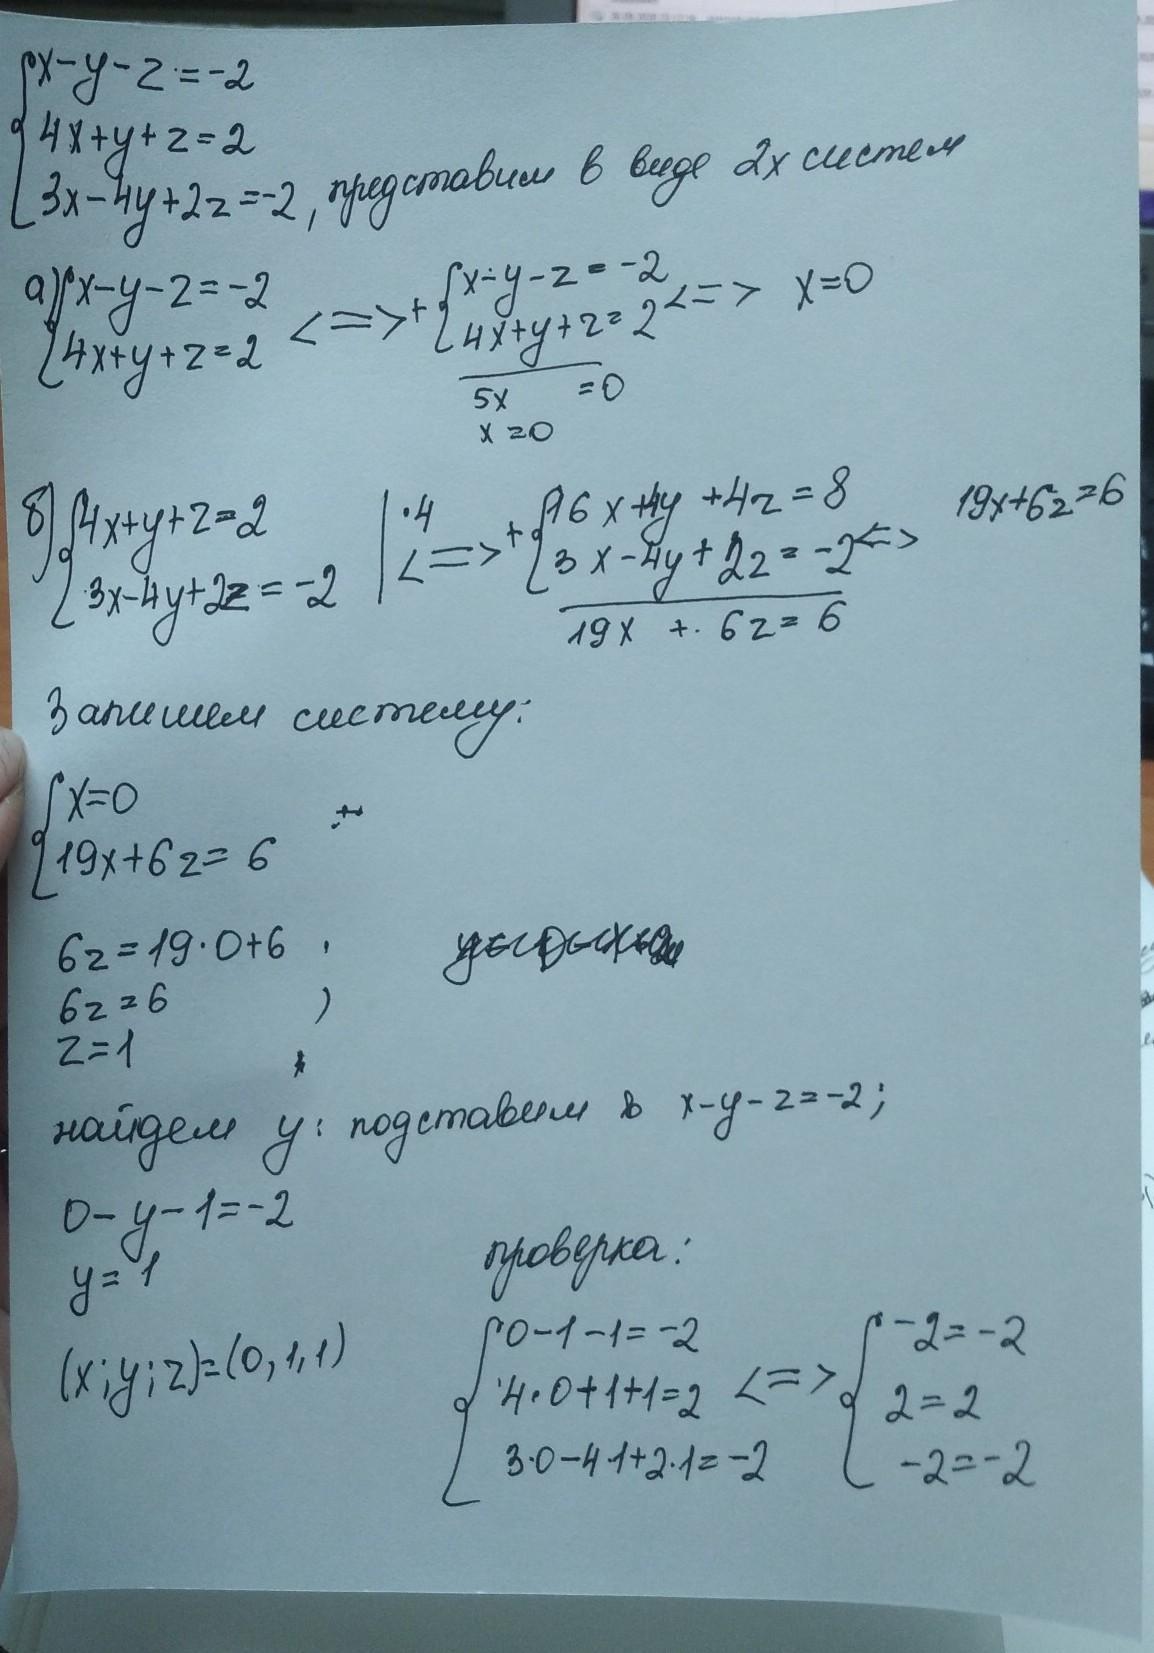 x-y-z=-2
4x+y+z=2
3x-4y+2z=-2, представим в виде 2х систем
а) x-y-z=-2 <=> + x-y-z=-2 <=> x=0
4x+y+z=2 4x+y+z=2
5x =0
x=0
б) 4x+y+z=2 | ·4 <=> + 16x+4y+4z=8 <=> 19x+6z=6
3x-4y+2z=-2 3x-4y+2z=-2
19x + 6z=6
Запишем систему:
x=0
19x+6z=6
6z=19·0+6
6z=6
z=1
найдем y: подставим в x-y-z=-2;
0-y-1=-2
y=1
(x;y;z)=(0,1,1)
проверка:
0-1-1=-2 <=> -2=-2
4·0+1+1=2 2=2
3·0-4·1+2·1=-2 -2=-2